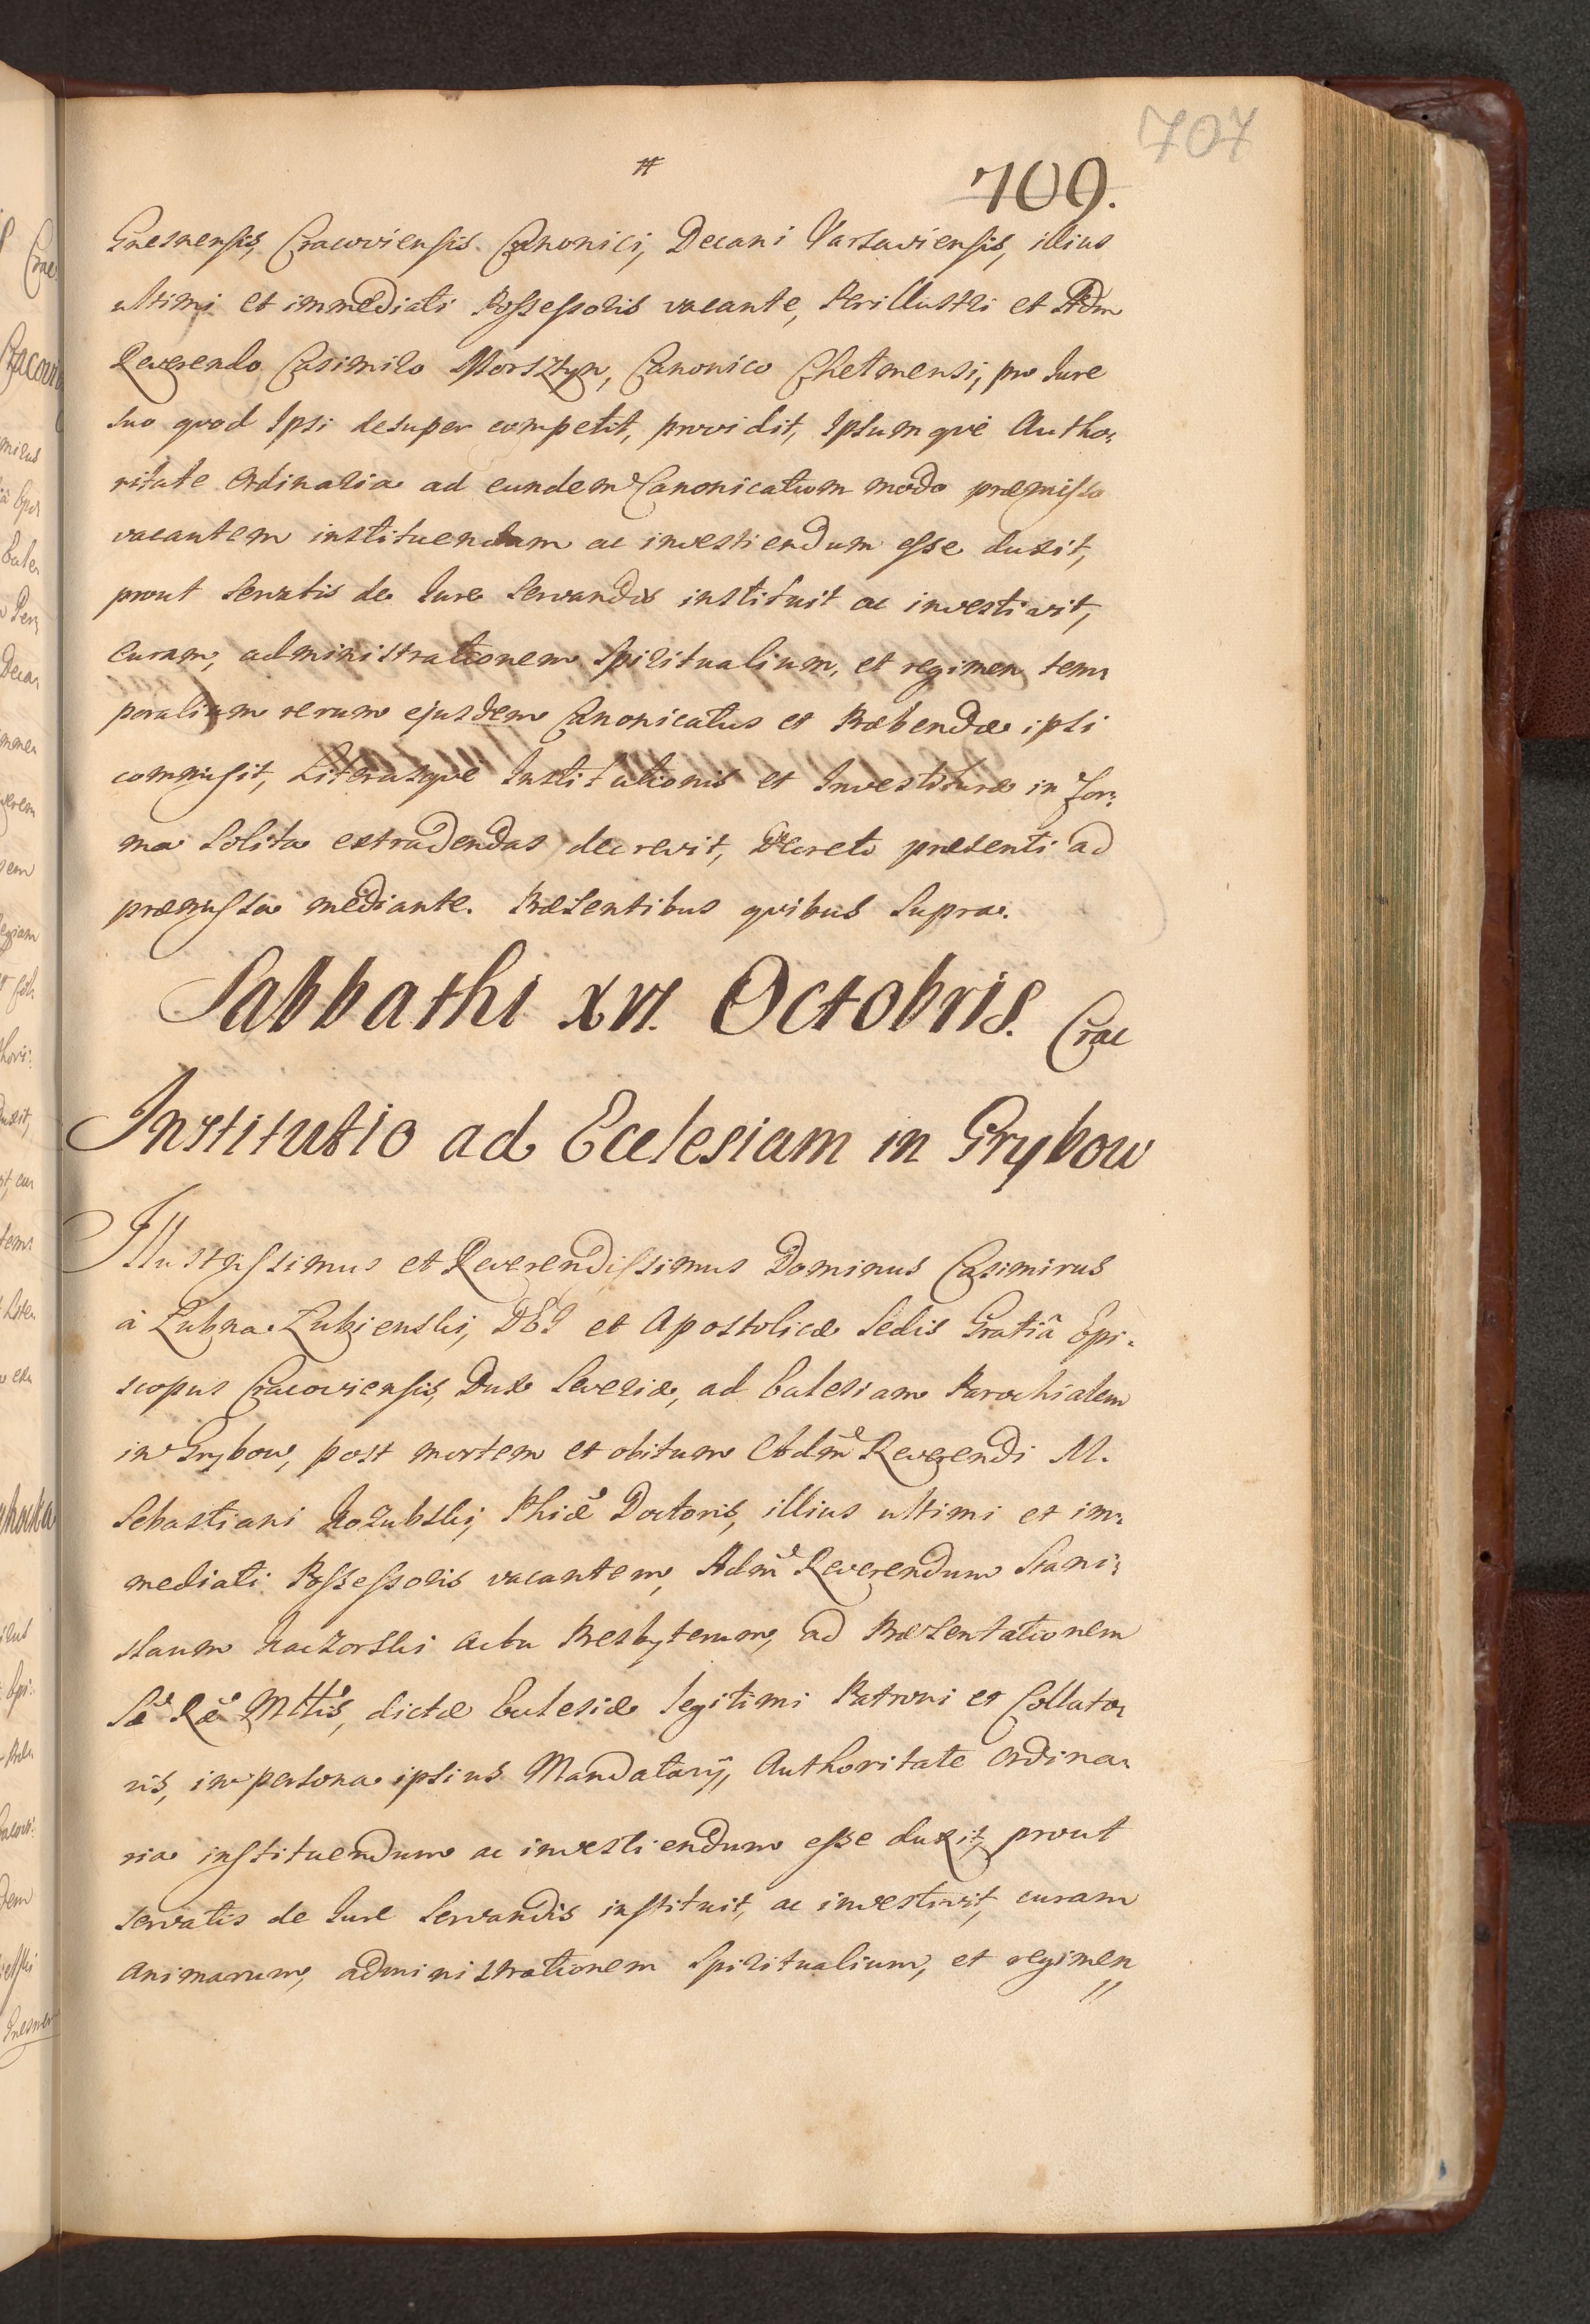 707
709.
Gnesnensis, Cracoviensis Canonici, Decani Varsaviensis, illius
ultimi et immediati Possessoris vacante, Perillustri et Adm
Reverendo Casimiro Morsztyn, Canonico Chelmensi, pro Jure
suo quod Ipsi desuper competit, providit, Ipsumque Autho:
ritate Ordinaria ad eundem Canonicatum modo præmisso
vacantem instituendum ac investiendum esse duxit,
prout servatis de Jure servandis instituit ac investivit,
curam, administrationem Spiritualium, et regimen tem:
poralium rerum ejusdem Canonicatus et Præbendæ ipsi
commisit, Literasque Institutionis et Investituræ in for:
ma solita extradendas decrevit, Decreto præsenti ad
præmissa mediante. Præsentibus quibus supra.
Sabbathi XVI. Octobris. Crac
Institutio ad Ecclesiam in Grybow
Illustrissimus et Reverendissimus Dominus Casimirus
à Lubna Lubienski, DEI et Apostolicæ Sedis Gratiâ Epi:
scopus Cracoviensis, Dux Severiæ, ad Ecclesiam Parochialem
in Grybow, post mortem et obitum Adm Reverendi M.
Sebastiani Kozubski, Phiæ Doctoris, illius ultimi et im:
mediati Possessoris vacantem, Adm Reverendum Stani:
slaum Kaczorski actu Presbyterum, ad Præsentationem
Sæ Ræ Mttis, dictæ Ecclesiæ legitimi Patroni et Collato:
ris, in persona ipsius Mandatarij, Authoritate Ordina:
ria instituendum ac investiendum esse duxit, prout
servatis de Jure servandis instituit, ac investivit, curam
animarum, administrationem Spiritualium, et regimen